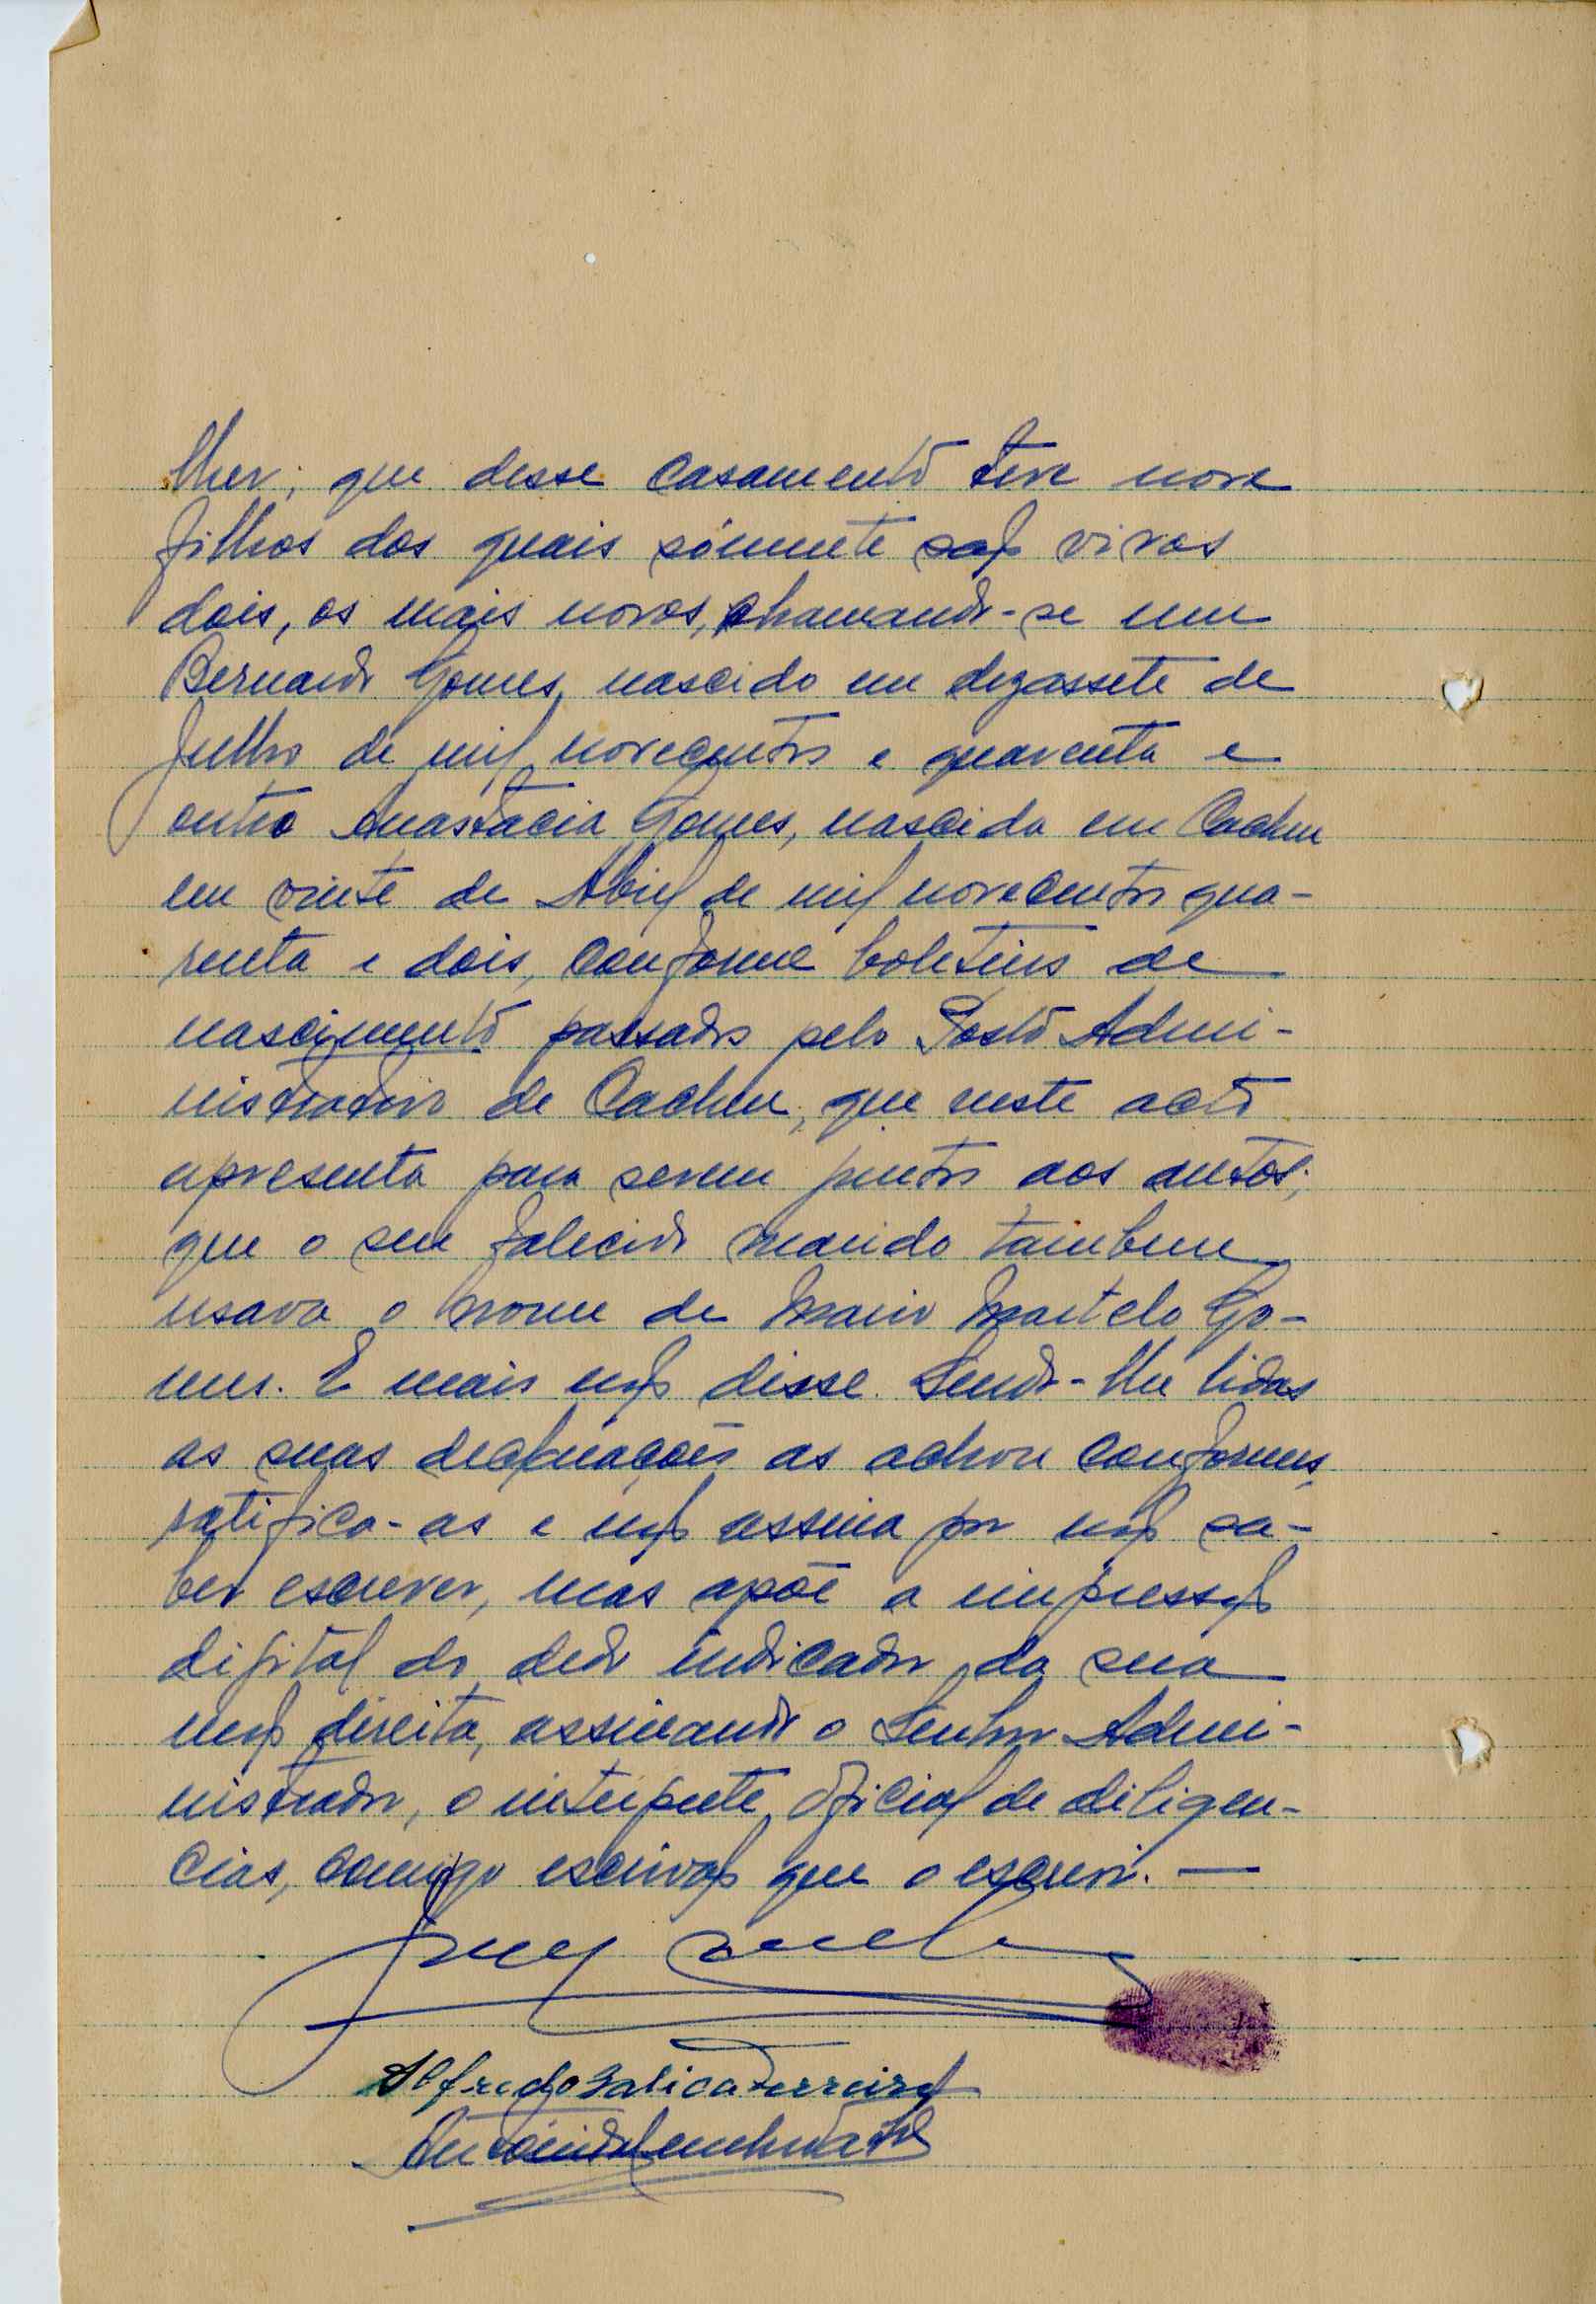 lher; que desse casamento teve nove
filhos dos quais sómente são vivos
dois, os mais novos, chamando-se um
Bernardo Gomes, nascido em dezassete de
Julho de mil novecentos e quarenta e
outro Anastácia Gomes, nascida em Cacheu
em vinte de Abril de mil novecentos qua-
renta e dois, conforme boletins de
nascimento passados pelo Posto Admi-
nistrativo de Cacheu, que neste acto
apresenta para serem juntos aos autos;
que o seu falecido marido tambem
usava o nome de Mario Martelo Go-
mes. E mais não disse. Sendo-lhe lidas
as suas declarações as achou conformes,
ratifica-as e não assina por não sa-
ber escrever, mas apõe a impressão
digital do dedo indicador da sua
mão direita, assinando o Senhor Admi-
nistrador, o interprete, oficial de diligen-
cias, comigo escrivão que o escrevi. —
Alfredo Ferreira